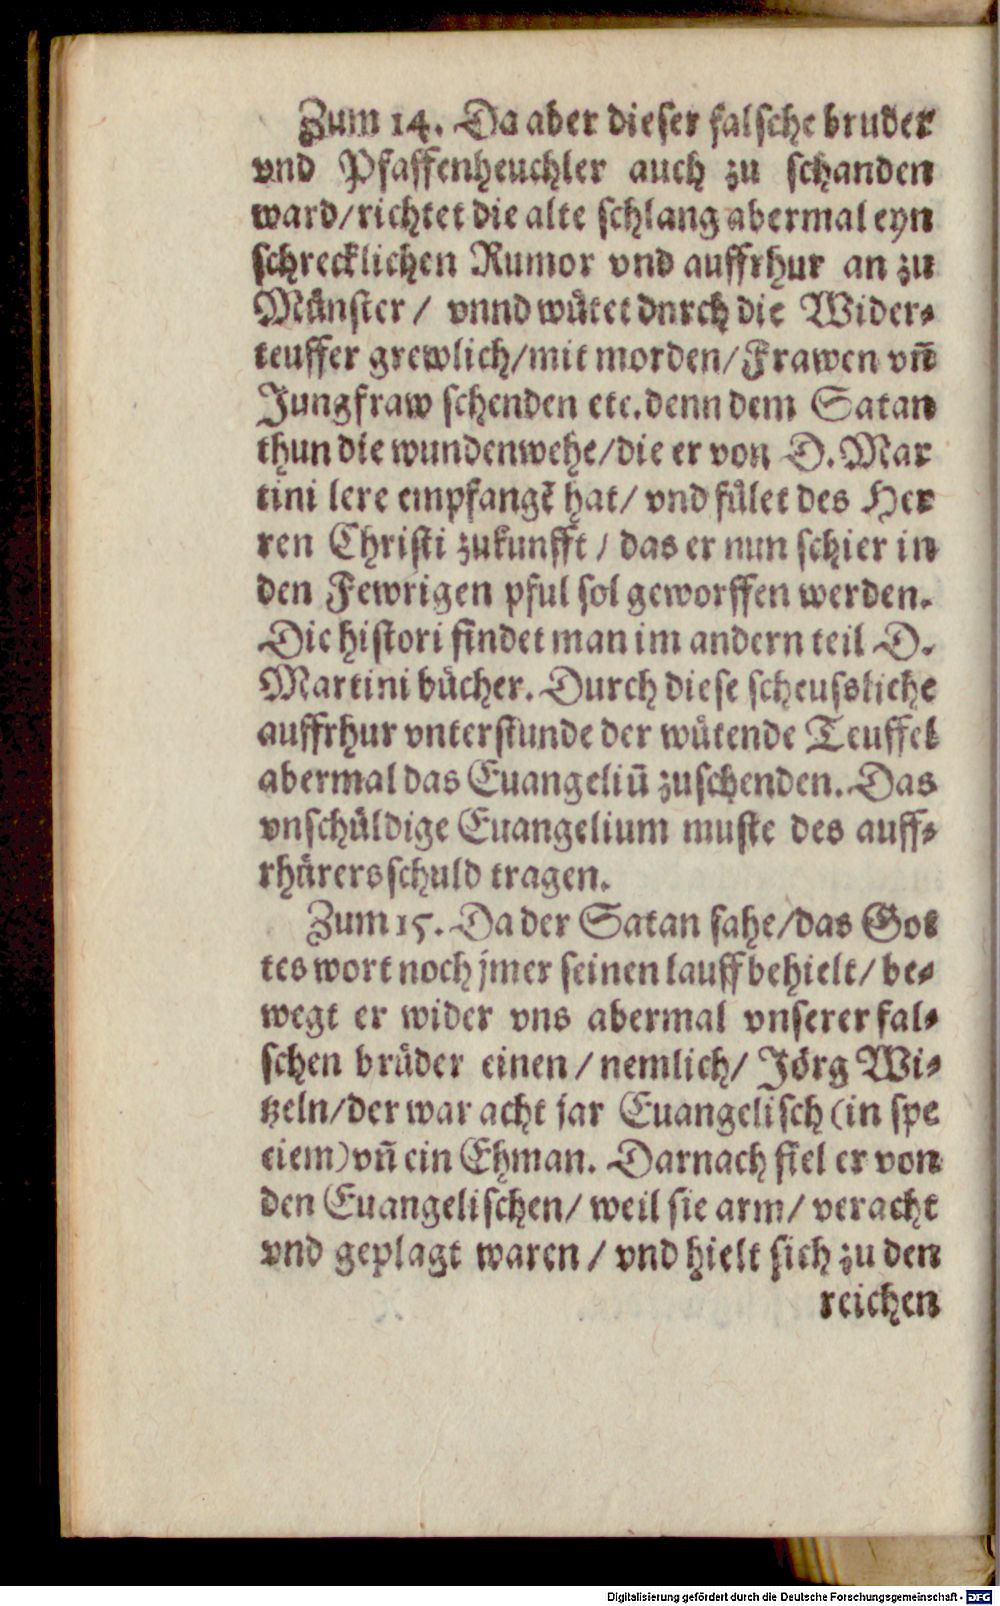 Zum 14. Da aber dieser falsche bruder
vnd Pfaffenheuchler auch zu schanden
ward/richtet die alte schlang abermal eyn
schrecklichen Rumor vnd auffrhur an zu
Muͤnster / vnnd wuͤtet dnrch die Wider⸗
teuffer grewlich/mit morden/Frawen vn̄
Jungfraw schenden etc. denn dem Satan
thun die wundenwehe/die er von D. Mar
tini lere empfangē hat/ vnd fuͤlet des Her
ren Christi zukunfft / das er nun schier in
den Fewrigen pful sol geworffen werden.
Die histori findet man im andern teil D.
Martini buͤcher. Durch diese scheusliche
auffrhur vnterstunde der wuͤtende Teuffel
abermal das Euangeliū zuschenden. Das
vnschuͤldige Euangelium muste des auff⸗
rhuͤrers schuld tragen.
Zum 15. Da der Satan sahe/das Got
tes wort noch jmer seinen lauff behielt/ be⸗
wegt er wider vns abermal vnserer fal⸗
schen bruͤder einen / nemlich/ Joͤrg Wi⸗
tzeln/der war acht jar Euangelisch (in spe
ciem) vn̄ ein Ehman. Darnach fiel er von
den Euangelischen/ weil sie arm/ veracht
vnd geplagt waren / vnd hielt sich zu den
reichen
Digitalisierung gefördert durch die Deutsche Forschungsgemeinschaft - DFG